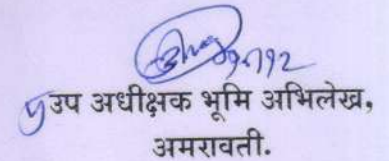 उप अधीक्षक भूमि अभिलेख,
अमरावती.